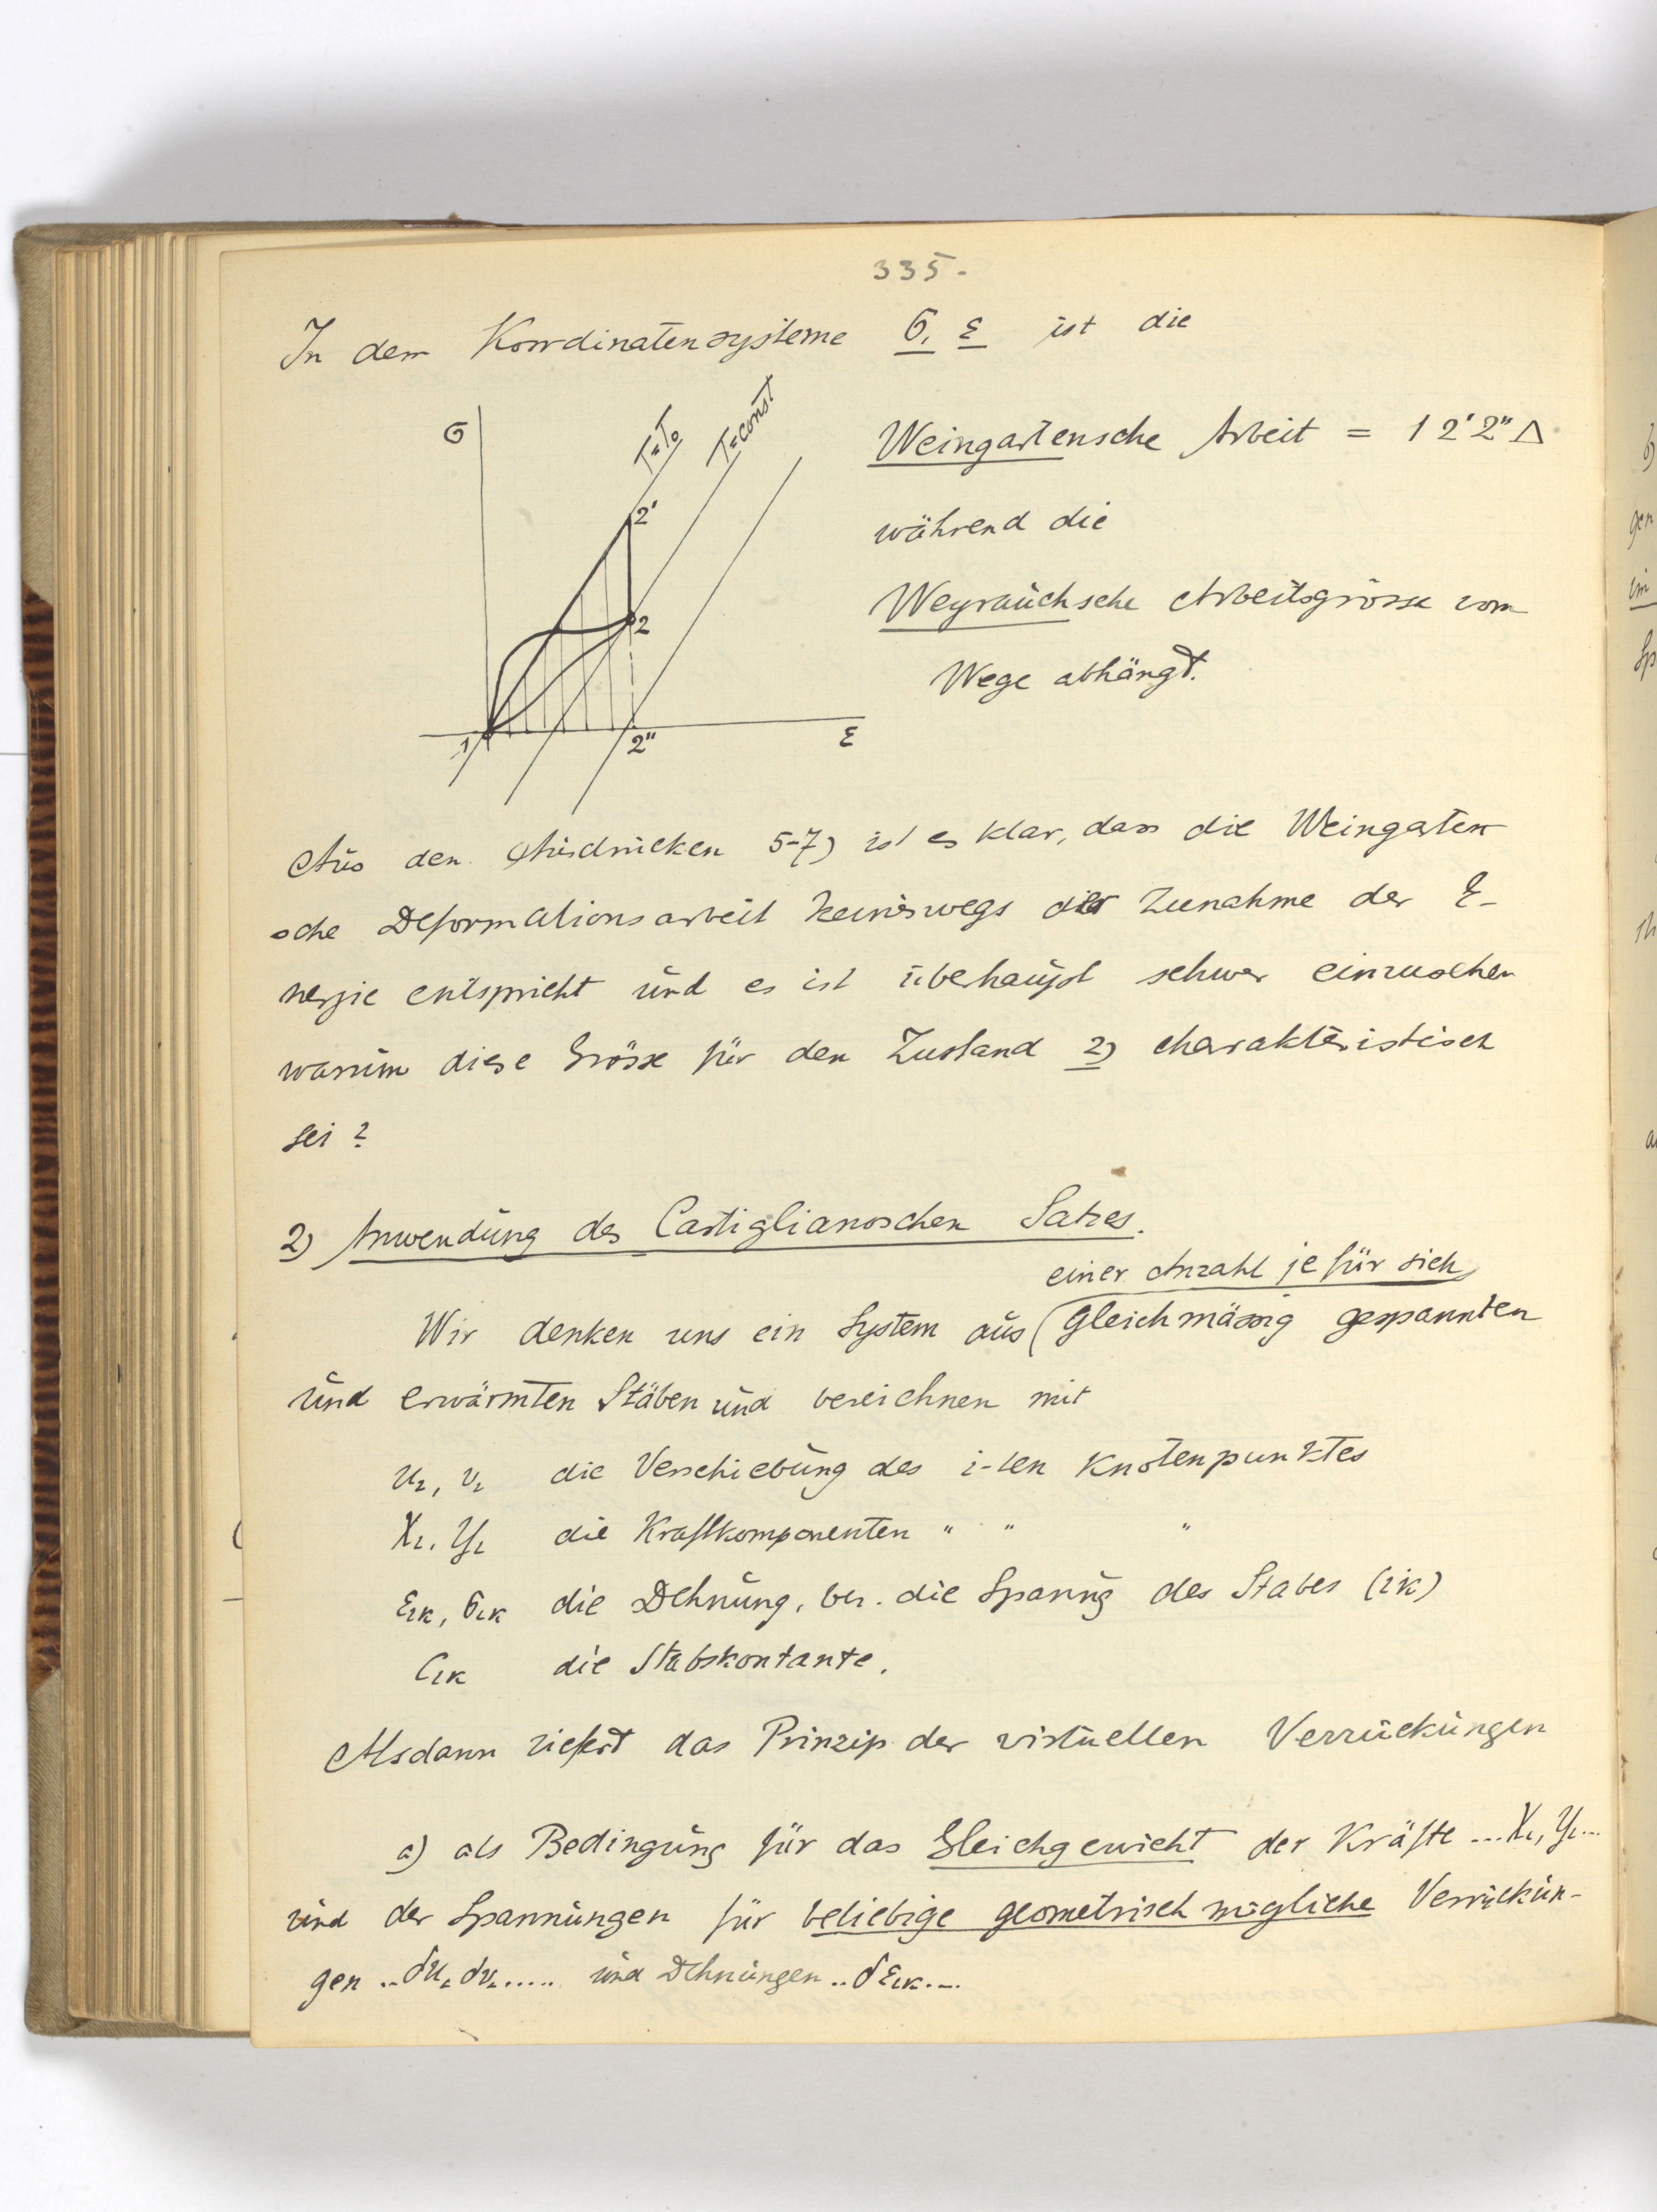 335.
In dem Koordinatensysteme σ, ε ist die
σ
T=T₀
T=const
2'
2
1
2"
ε
Weingartensche Arbeit = 1 2' 2" Δ
während die
Weyrauchsche Arbeitsgrösse vom
Wege abhängt.
Aus den Ausdrücken 5-7) ist es klar, dass die Weingarten
sche Deformationsarbeit keineswegs der Zunahme der E-
nergie entspricht und es ist überhaupt schwer einzusehen
warum diese Grösse für den Zustand 2) charakteristisch
sei?
2) Anwendung des Castiglianoschen Satzes.
einer Anzahl je für sich
Wir denken uns ein System aus gleichmässig gespannten
und erwärmten Stäben und bezeichnen mit
uᵢ, vᵢ die Verschiebung des i-ten Knotenpunktes
Xᵢ, Yᵢ die Kraftkomponenten " " "
εᵢₖ, σᵢₖ die Dehnung, bez. die Spanung des Stabes (ik)
Cᵢₖ die Stabskontante.
Alsdann liefert das Prinzip der virtuellen Verrückungen
a) als Bedingung für das Gleichgewicht der Kräfte ... Xᵢ, Yᵢ ...
und der Spannungen für beliebige geometrisch mögliche Verrückun-
gen .. δuᵢ δvᵢ ..... und Dehnungen .. δεᵢₖ ...